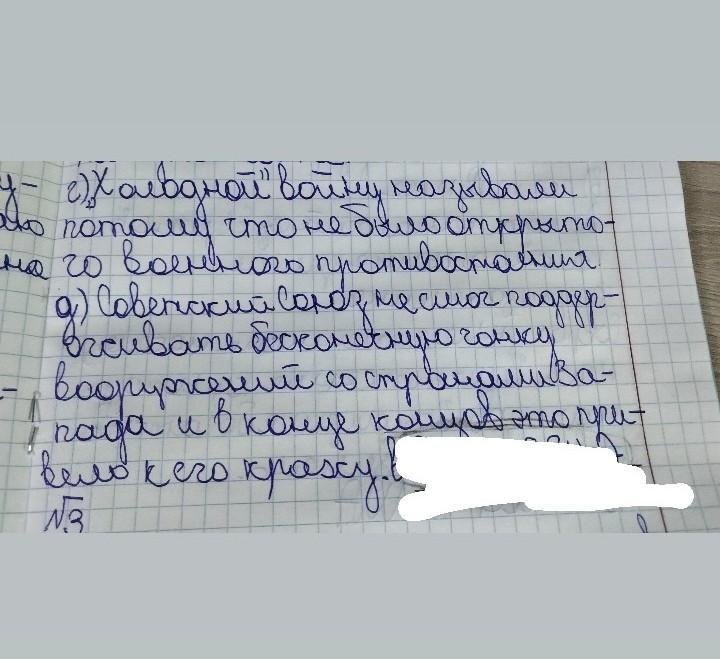 у- г) „Холодной" войну называли
потому что не было открыто-
на го военного противостояния.
д) Советский Союз не смог поддер-
живать бесконечную гонку
- вооружений со странами За-
пада и в конце концов это при-
вело к его краху.
№3